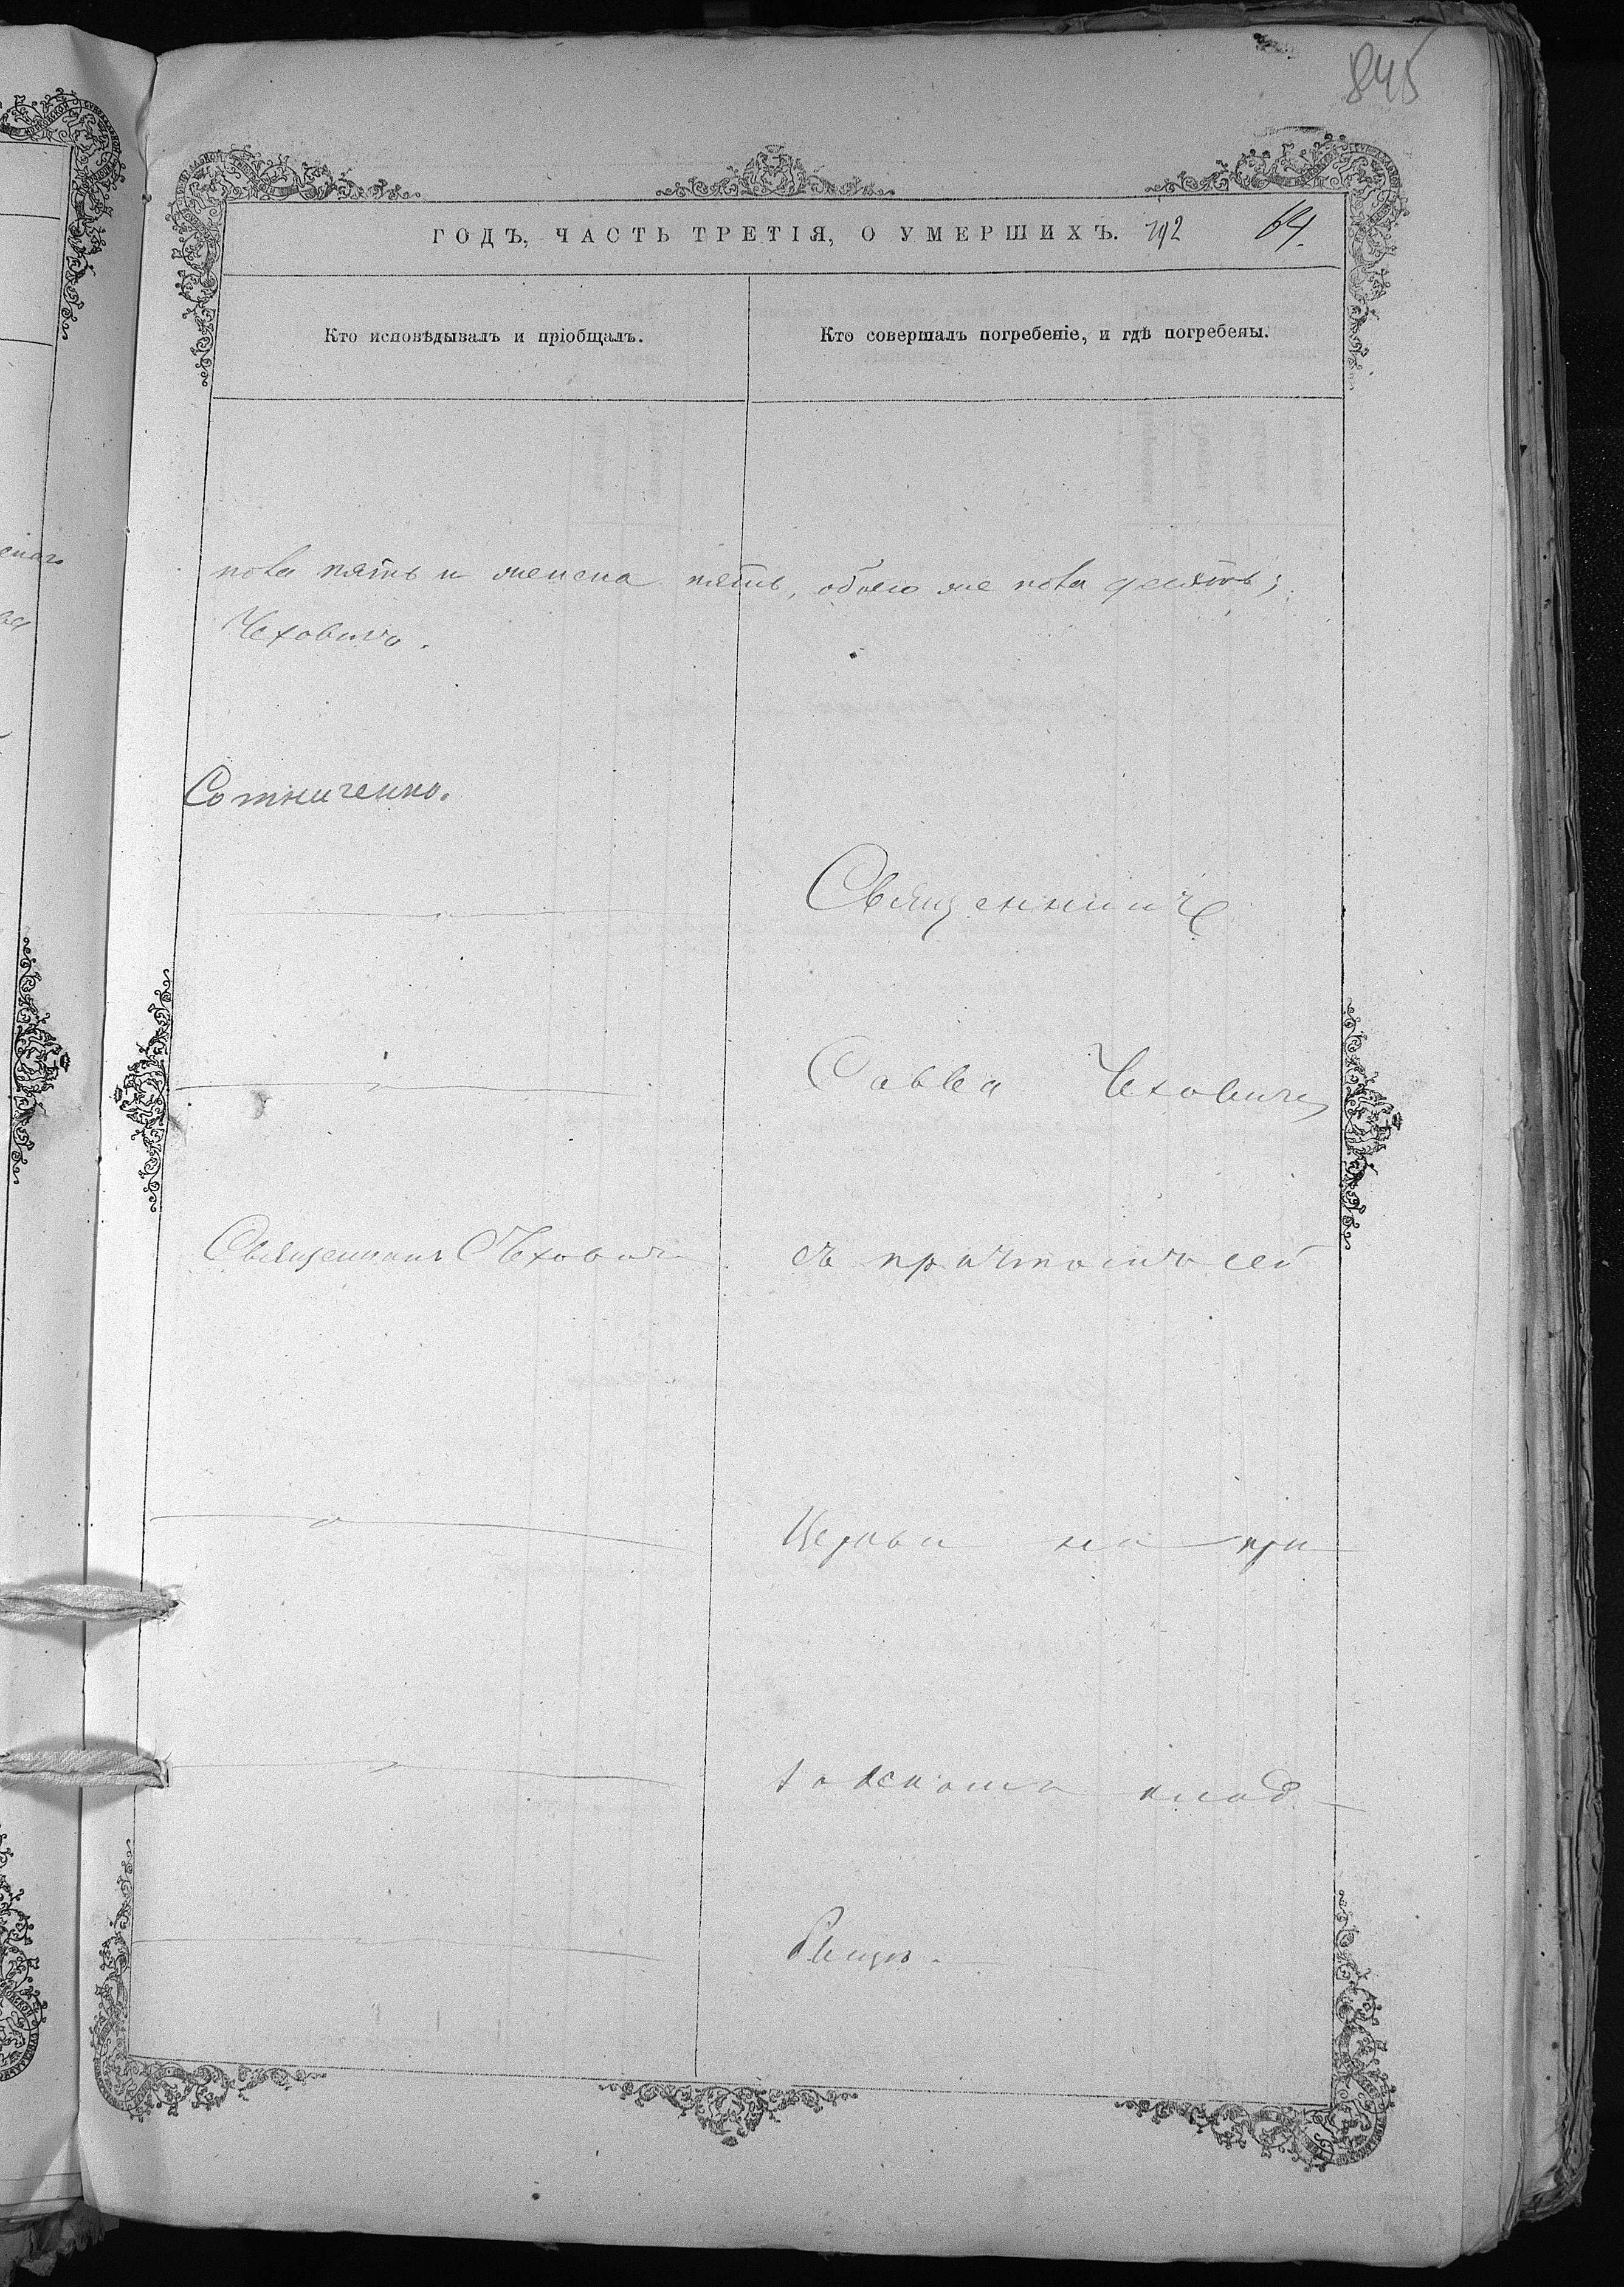 845
ГОДЪ, ЧАСТЬ ТРЕТІЯ, О УМЕРШИХЪ. 192 64.
Кто исповѣдывалъ и пріобщалъ.
Кто совершалъ погребеніе, и гдѣ погребены.
пола пять и женска пять, обоего же пола десять;
Чеховичъ.
Сотниченко.
Священникъ
Савва Чеховичъ
Священникъ С Чеховичъ
съ причтомъ сей
Церкви на при
ходскомъ клад
бищѣ.